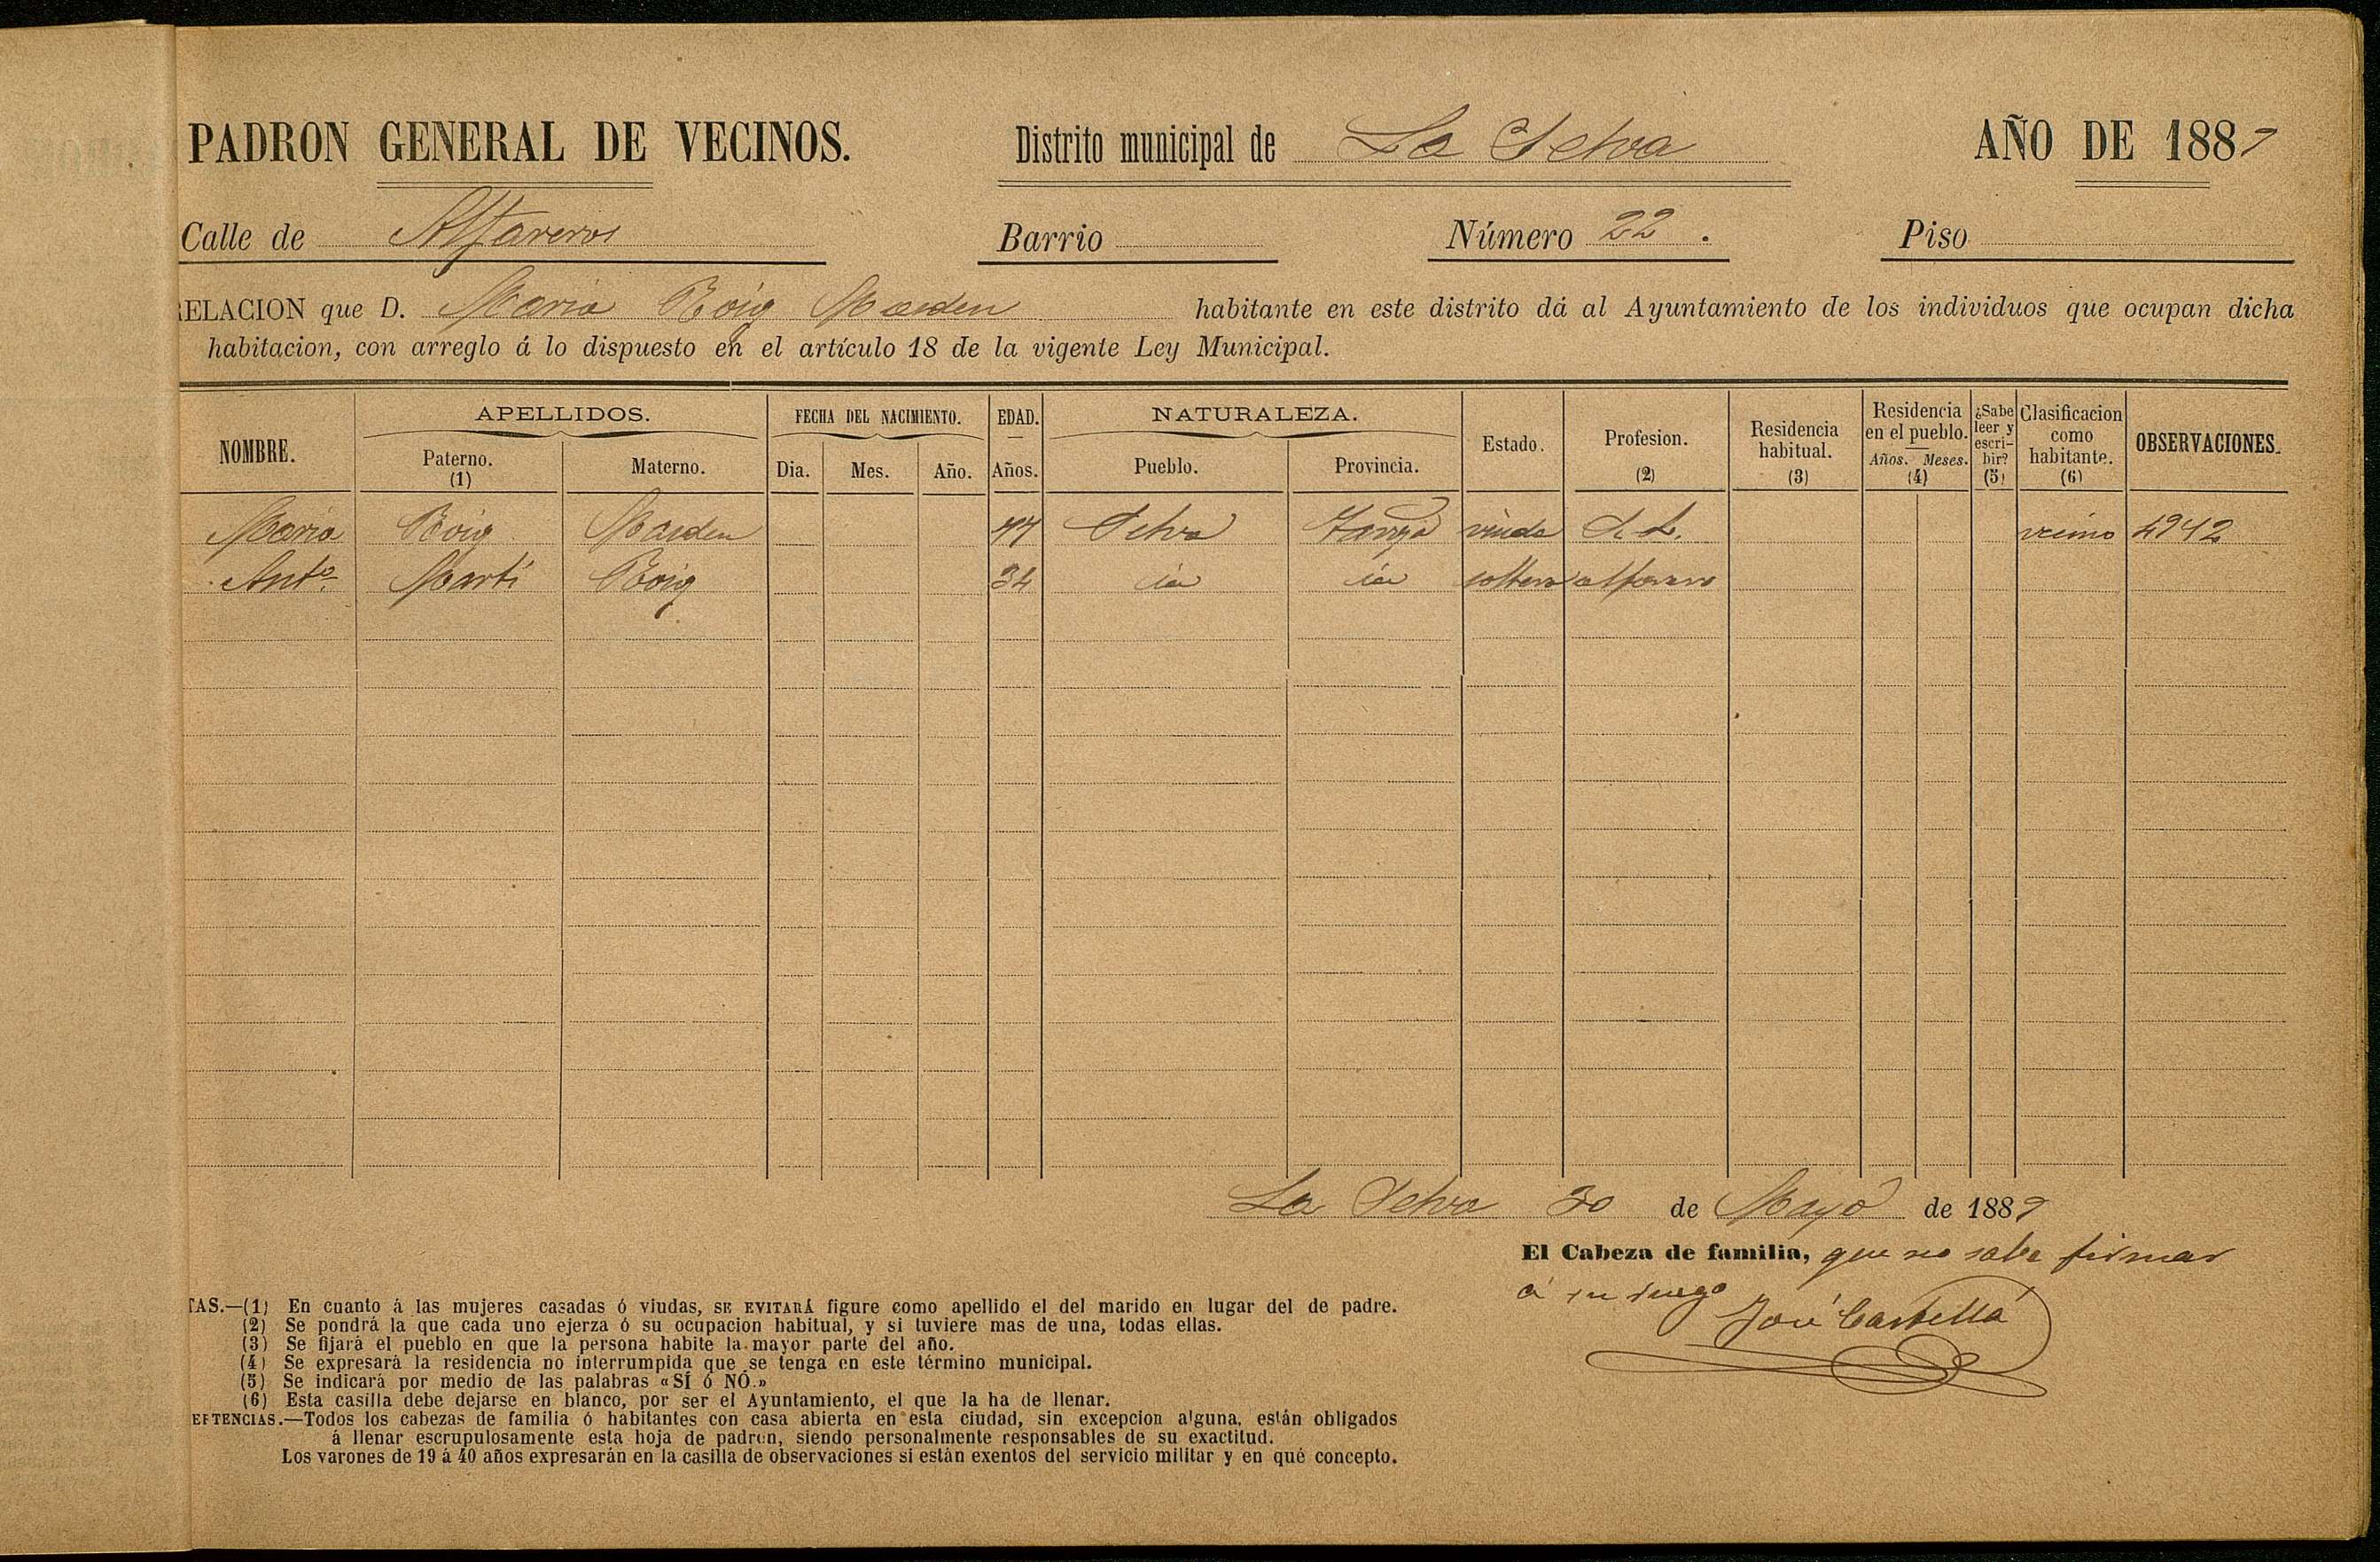 PADRON GENERAL DE VECINOS. Distrito municipal de La Selva AÑO DE 1889
Calle de Alfareros Barrio Número 22. Piso
RELACION que D. Maria Roig habitante en este distrito dá al Ayuntamiento de los individuos que ocupan dicha
habitacion, con arreglo á lo dispuesto en el artículo 18 de la vigente Ley Municipal.
NOMBRE. APELLIDOS. Paterno. (1) Materno. FECHA DEL NACIMIENTO. Dia. Mes. Año. EDAD. Años. NATURALEZA. Pueblo. Provincia. Estado. Profesion. (2) Residencia habitual. (3) Residencia en el pueblo. Años. Meses. (4) ¿Sabe leer y escribir? (5) Clasificacion como habitante. (6) OBSERVACIONES.
Maria Roig Selva viuda vecino
Antº Martí Roig 34 id id soltero alfarero
La Selva 30 de Mayo de 1889
El Cabeza de familia, que no sabe firmar
á su ruego
José Castellá
TAS.—(1) En cuanto á las mujeres casadas ó viudas, SE EVITARÁ figure como apellido el del marido en lugar del de padre.
(2) Se pondrá la que cada uno ejerza ó su ocupacion habitual, y si tuviere mas de una, todas ellas.
(3) Se fijará el pueblo en que la persona habite la mayor parte del año.
(4) Se expresará la residencia no interrumpida que se tenga en este término municipal.
(5) Se indicará por medio de las palabras «SÍ ó NÓ.»
(6) Esta casilla debe dejarse en blanco, por ser el Ayuntamiento, el que la ha de llenar.
ERTENCIAS.—Todos los cabezas de familia ó habitantes con casa abierta en esta ciudad, sin excepcion alguna, están obligados
á llenar escrupulosamente esta hoja de padron, siendo personalmente responsables de su exactitud.
Los varones de 19 á 40 años expresarán en la casilla de observaciones si están exentos del servicio militar y en qué concepto.